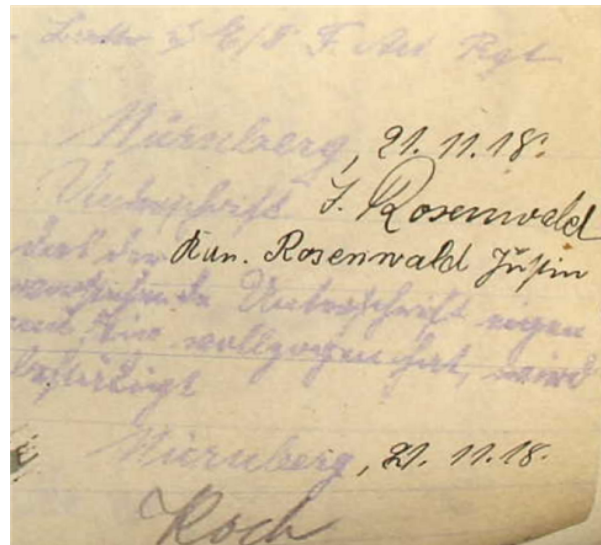 Battr 8 E/8 F. Art Rgt
Nürnberg, 21. 11. 18.
Unterschrift J. Rosenwald
daß der Kan. Rosenwald Justin
vorstehende Unterschrift eigen
vollzogen hat, wird
bestätigt
Nürnberg, 21. 11. 18.
Koch